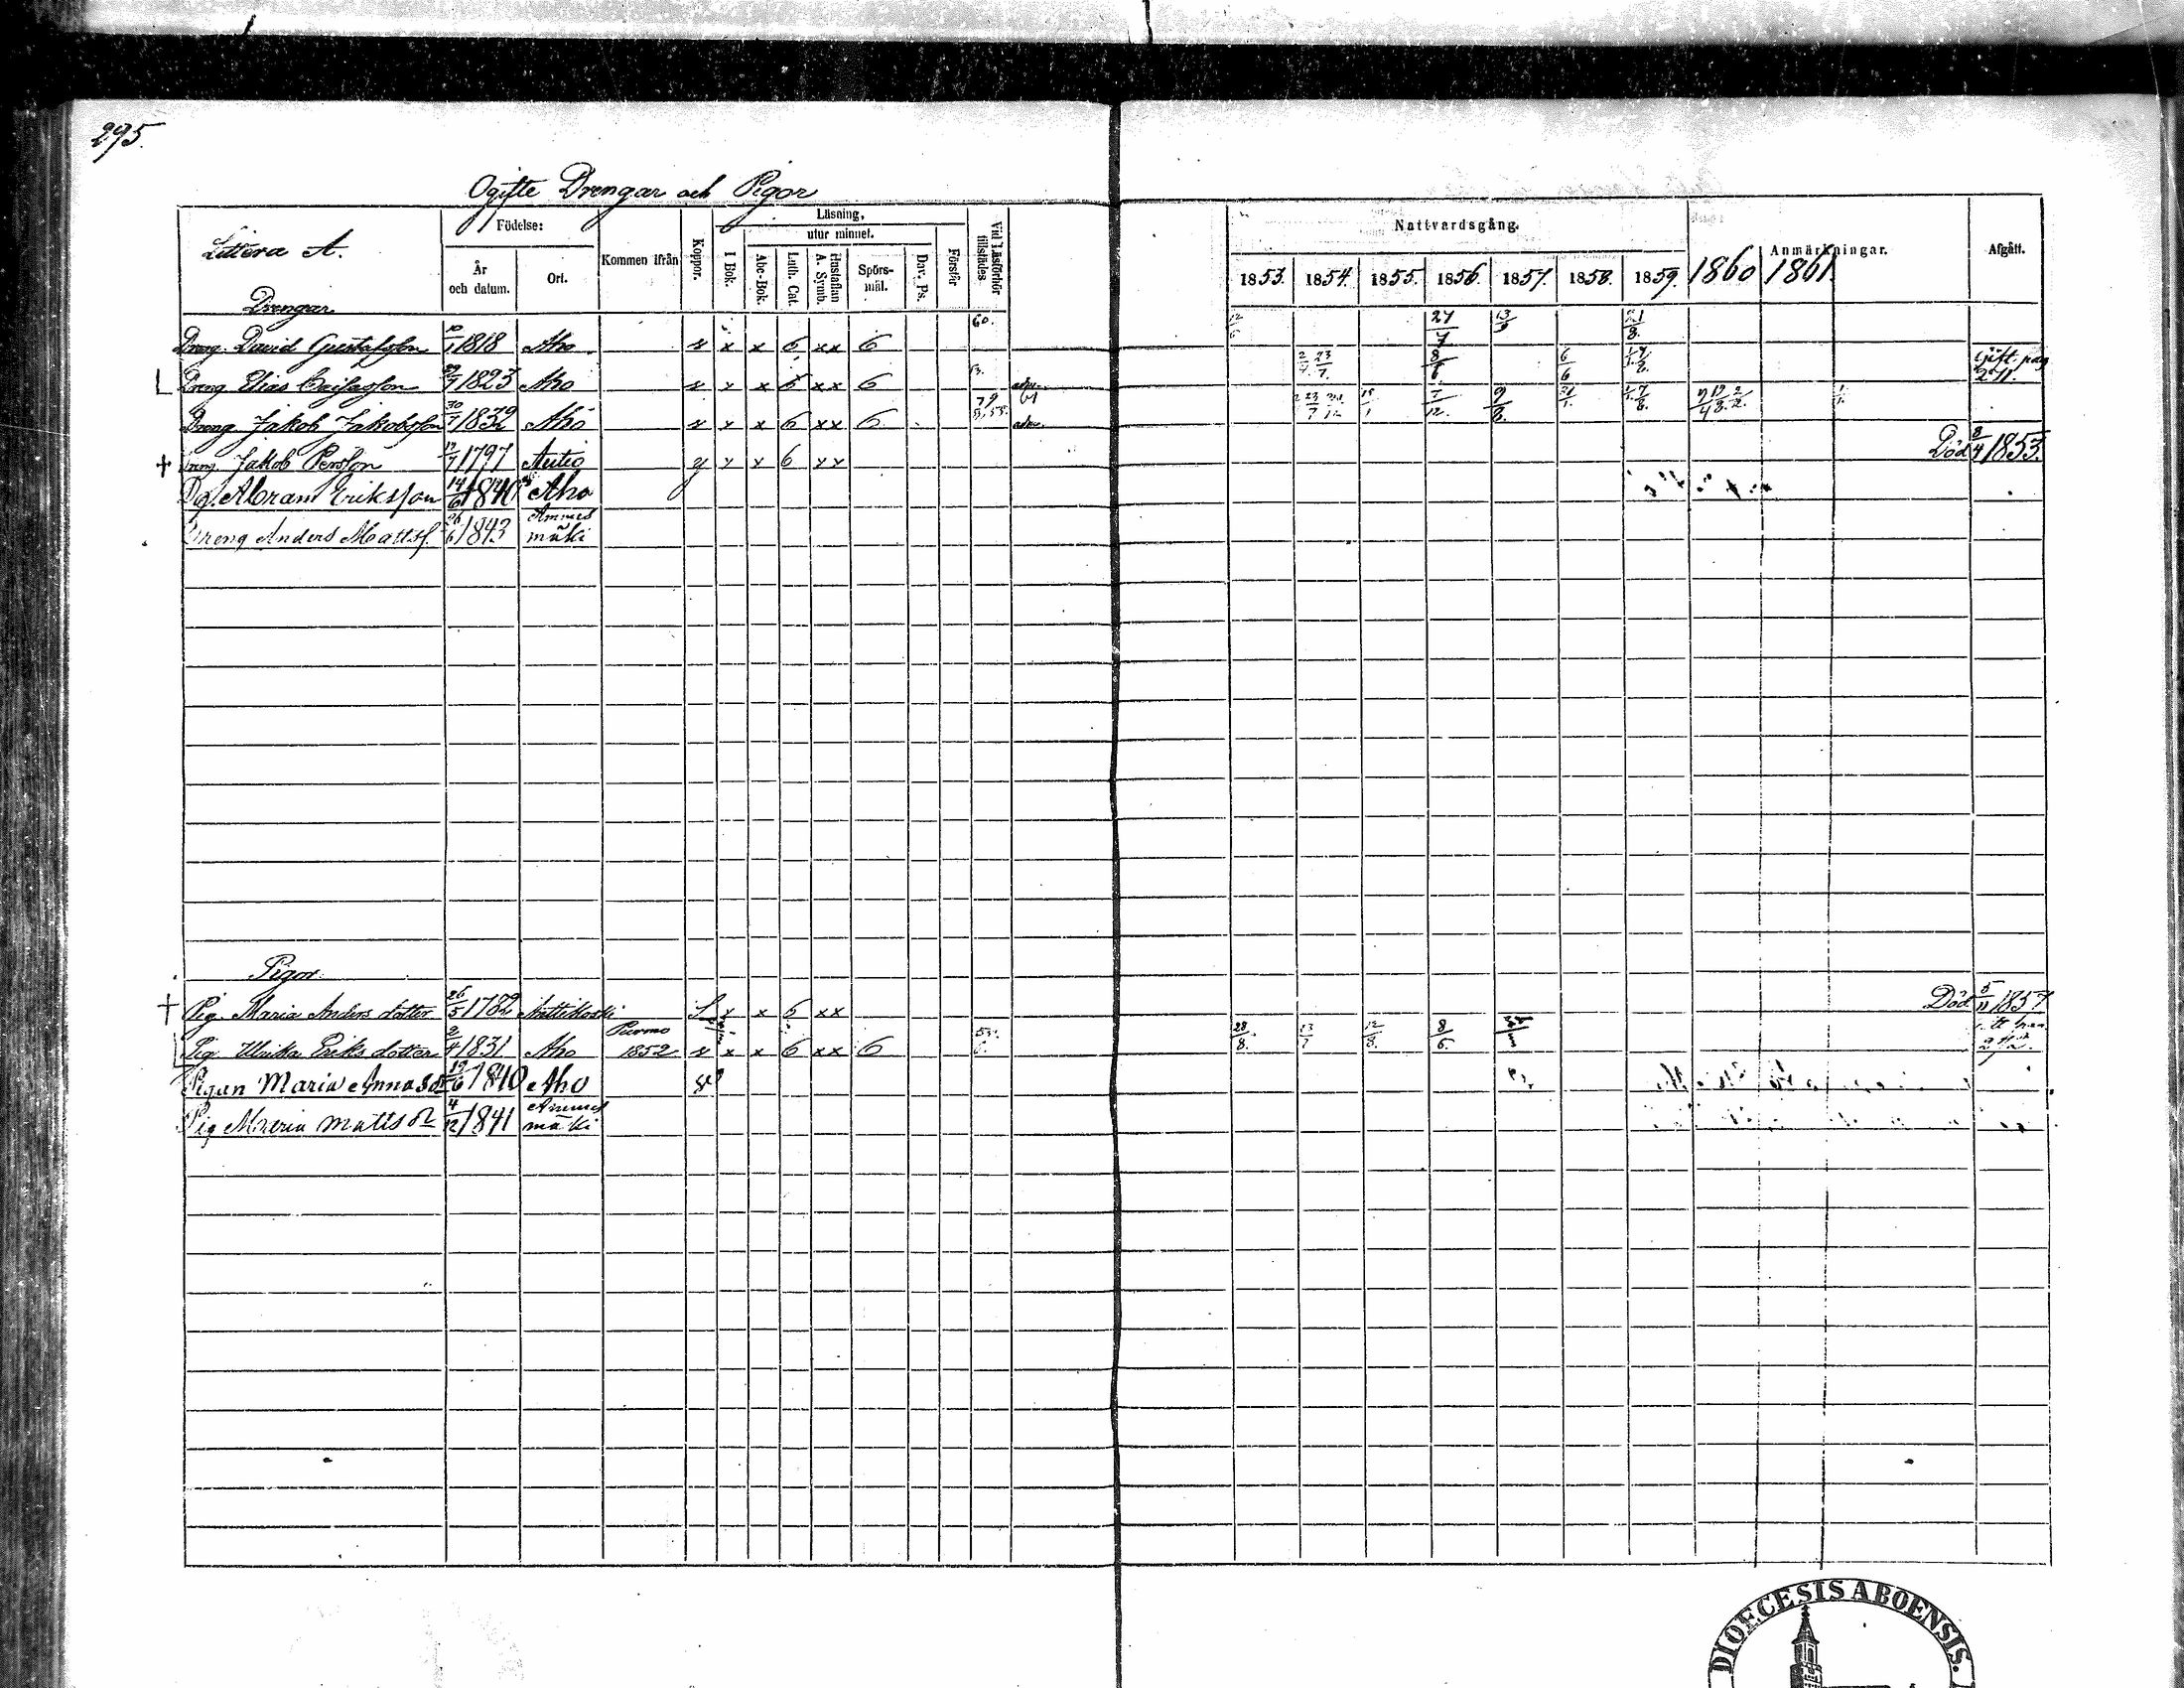 295.
Ogifte Drengar och Pigor
Littera A.
Födelse:
År och datum.
Ort.
Kommen ifrån
Koppor.
Läsning,
I Bok.
utur minnet.
Abc-Bok.
Luth. Cat.
Hustaflan A. Symb.
Spörs-mål.
Dav. Ps.
Förstår
Vid Läsförhör tillstädes
Nattvardsgång.
1853. 1854. 1855. 1856. 1857. 1858. 1859. 1860 1861.
Anmärkningar.
Afgått.
Drengar
Dreng David Gustafsson 1818 Aho x x x 6 xx 6 60. 12/6 27/7 13/9 21/8.
Dreng Elias 29/7 1823 Aho x x x 6 xx 6 2/7 23/7. 8/6 6/6 Gift pag 271.
Dreng Jakob Jakobsson 30/7 1832 Aho x x x 6 xx 6 7/12. 9/8.
+ Dreng Jakob Persson 17/7 1797 x x x 6 xx Död 8/4 1853.
Dg. Abram Eriksson 14/6 1840 Aho
Dreng Anders Mattss. 26/6 1843 Ammesmäki
Pigor
+ Pig. Maria Anders dotter 26/5 1782 Anttikoski x x 6 xx Död 5/11 1857
Pig Ulrika Eriks dotter 2/4 1831 Aho Purmo 1852 x x x 6 xx 6 28/8. 13/7 12/8. 8/6.
Pigan Maria Annas dr 19/6 1840 Aho
Pig Maria Matts dr 4/12 1841 Ammesmäki
DIOECESIS ABOENSIS.